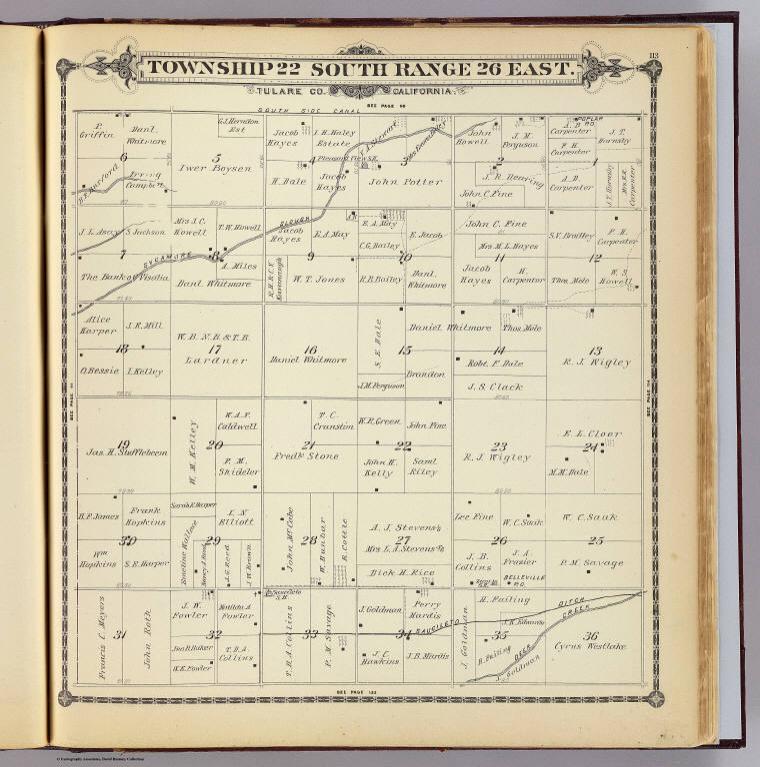 113
TOWNSHIP 22 SOUTH RANGE 26 EAST.
TULARE CO. CALIFORNIA.
SEE PAGE 90
SOUTH SIDE CANAL
P. Griffin
Danl. Whitmore
6
Irving Campbell
G.J. Hernelton Est
5
Iwer Boysen
Jacob Hayes
I. H. Haley Estate
4
Pleasant View S.H.
H. Dale
Jacob Hayes
3
John Potter
John Howell
J. M. Ferguson
2
J. R. Hearing
John C. Fine
POPLAR P.O.
A. B. Carpenter
F. H. Carpenter
J. T. Hornsby
1
A. D. Carpenter
J. T. Hornsby
Carpenter
S. Jackson
7
The Bank of Visalia
Mrs J. C. Howell
T. W. Howell
8
A. Miles
Danl Whitmore
SYCAMORE
SLOUGH
Jacob Hayes
E. A. May
9
W. T. Jones
E. A. May
C. G. Bailey
E. Jacob
10
R. B. Bailey
Danl. Whitmore
John C. Fine
Mrs M. L. Hayes
11
Jacob Hayes
H. Carpenter
S. V. Bradley
P. H. Carpenter
12
Thos. Mole
W. S. Howell
Alice Harper
J. R. Mill
18
O. Bessie
I. Kelley
W. B. N. B. & T. B.
17
Lardner
16
Daniel Whitmore
S. E. Dale
Daniel Whitmore
15
Brandon
J. M. Ferguson
Thos. Mole
14
Robt. F. Dale
J. S. Clack
13
R. J. Wigley
19
Jas. H. Shufflebeem
W. M. Kelley
W. A. F. Caldwell
20
P. M. Shideler
T. C. Cranshm
21
Fredk Stone
W. R. Green
John Fine
22
John H. Kelly
Saml. Riley
23
R. J. Wigley
E. L. Cloer
24
M. M. Dale
H. F. James
Frank Hopkins
30
Wm Hopkins
S. E. Harper
Sarah E. Harper
I. N. Elliott
29
J. G. Reed
J. W. Brown
John McCabe
28
W. Dunbar
R. Cottle
A. J. Stevens
27
Mrs L. A. Stevens
Dick H. Rice
Lee Fine
W. C. Sauk
26
J. B. Collins
J. A. Frasier
BELLEVILLE P.O.
W. C. Sauk
25
P. M. Savage
Francis C. Meyers
31
John Roth
J. W. Fowler
Matilda A Fowler
32
Jno B. Baker
T. B. A. Collins
W. E. Fowler
Sauselito S.H.
T. B. A. Collins
33
P. M. Savage
J. Goldman
Perry Mardis
34
J. C. Hawkins
J. B. Mardis
SAUCILETO
DITCH
H. Failing
J. K. Edwards
35
J. Goldman
H. Failing
DEER
CREEK
J. Goldman
36
Cyrus Westlake
SEE PAGE 122
© Cartography Associates, David Rumsey Collection